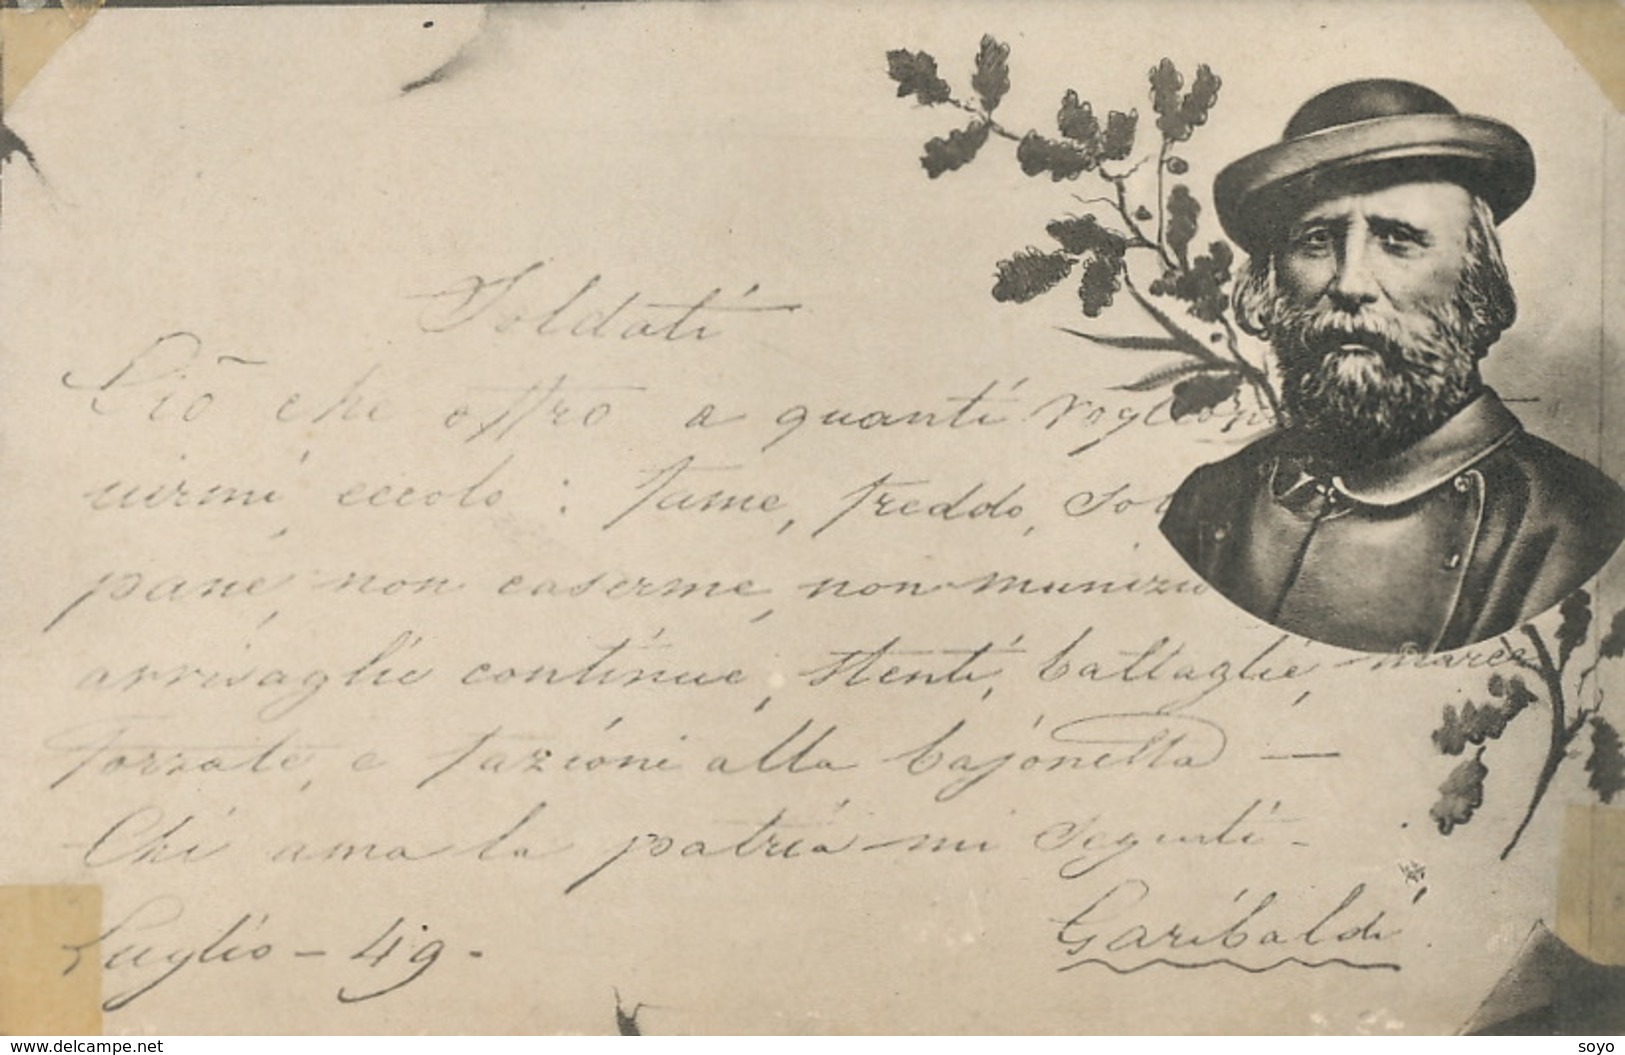 Soldati
Ciò che offro a quanti vogliono
uirmi, eccolo: Fame, freddo, Sol
pane, non caserme, non munizio
avvisaglie continue, stenti, battaglie, marce
forzate, e fazioni alla bajonetta —
Chi ama la patria mi seguiti -
Luglio - 49 -
Garibaldi
www.delcampe.net
soyo